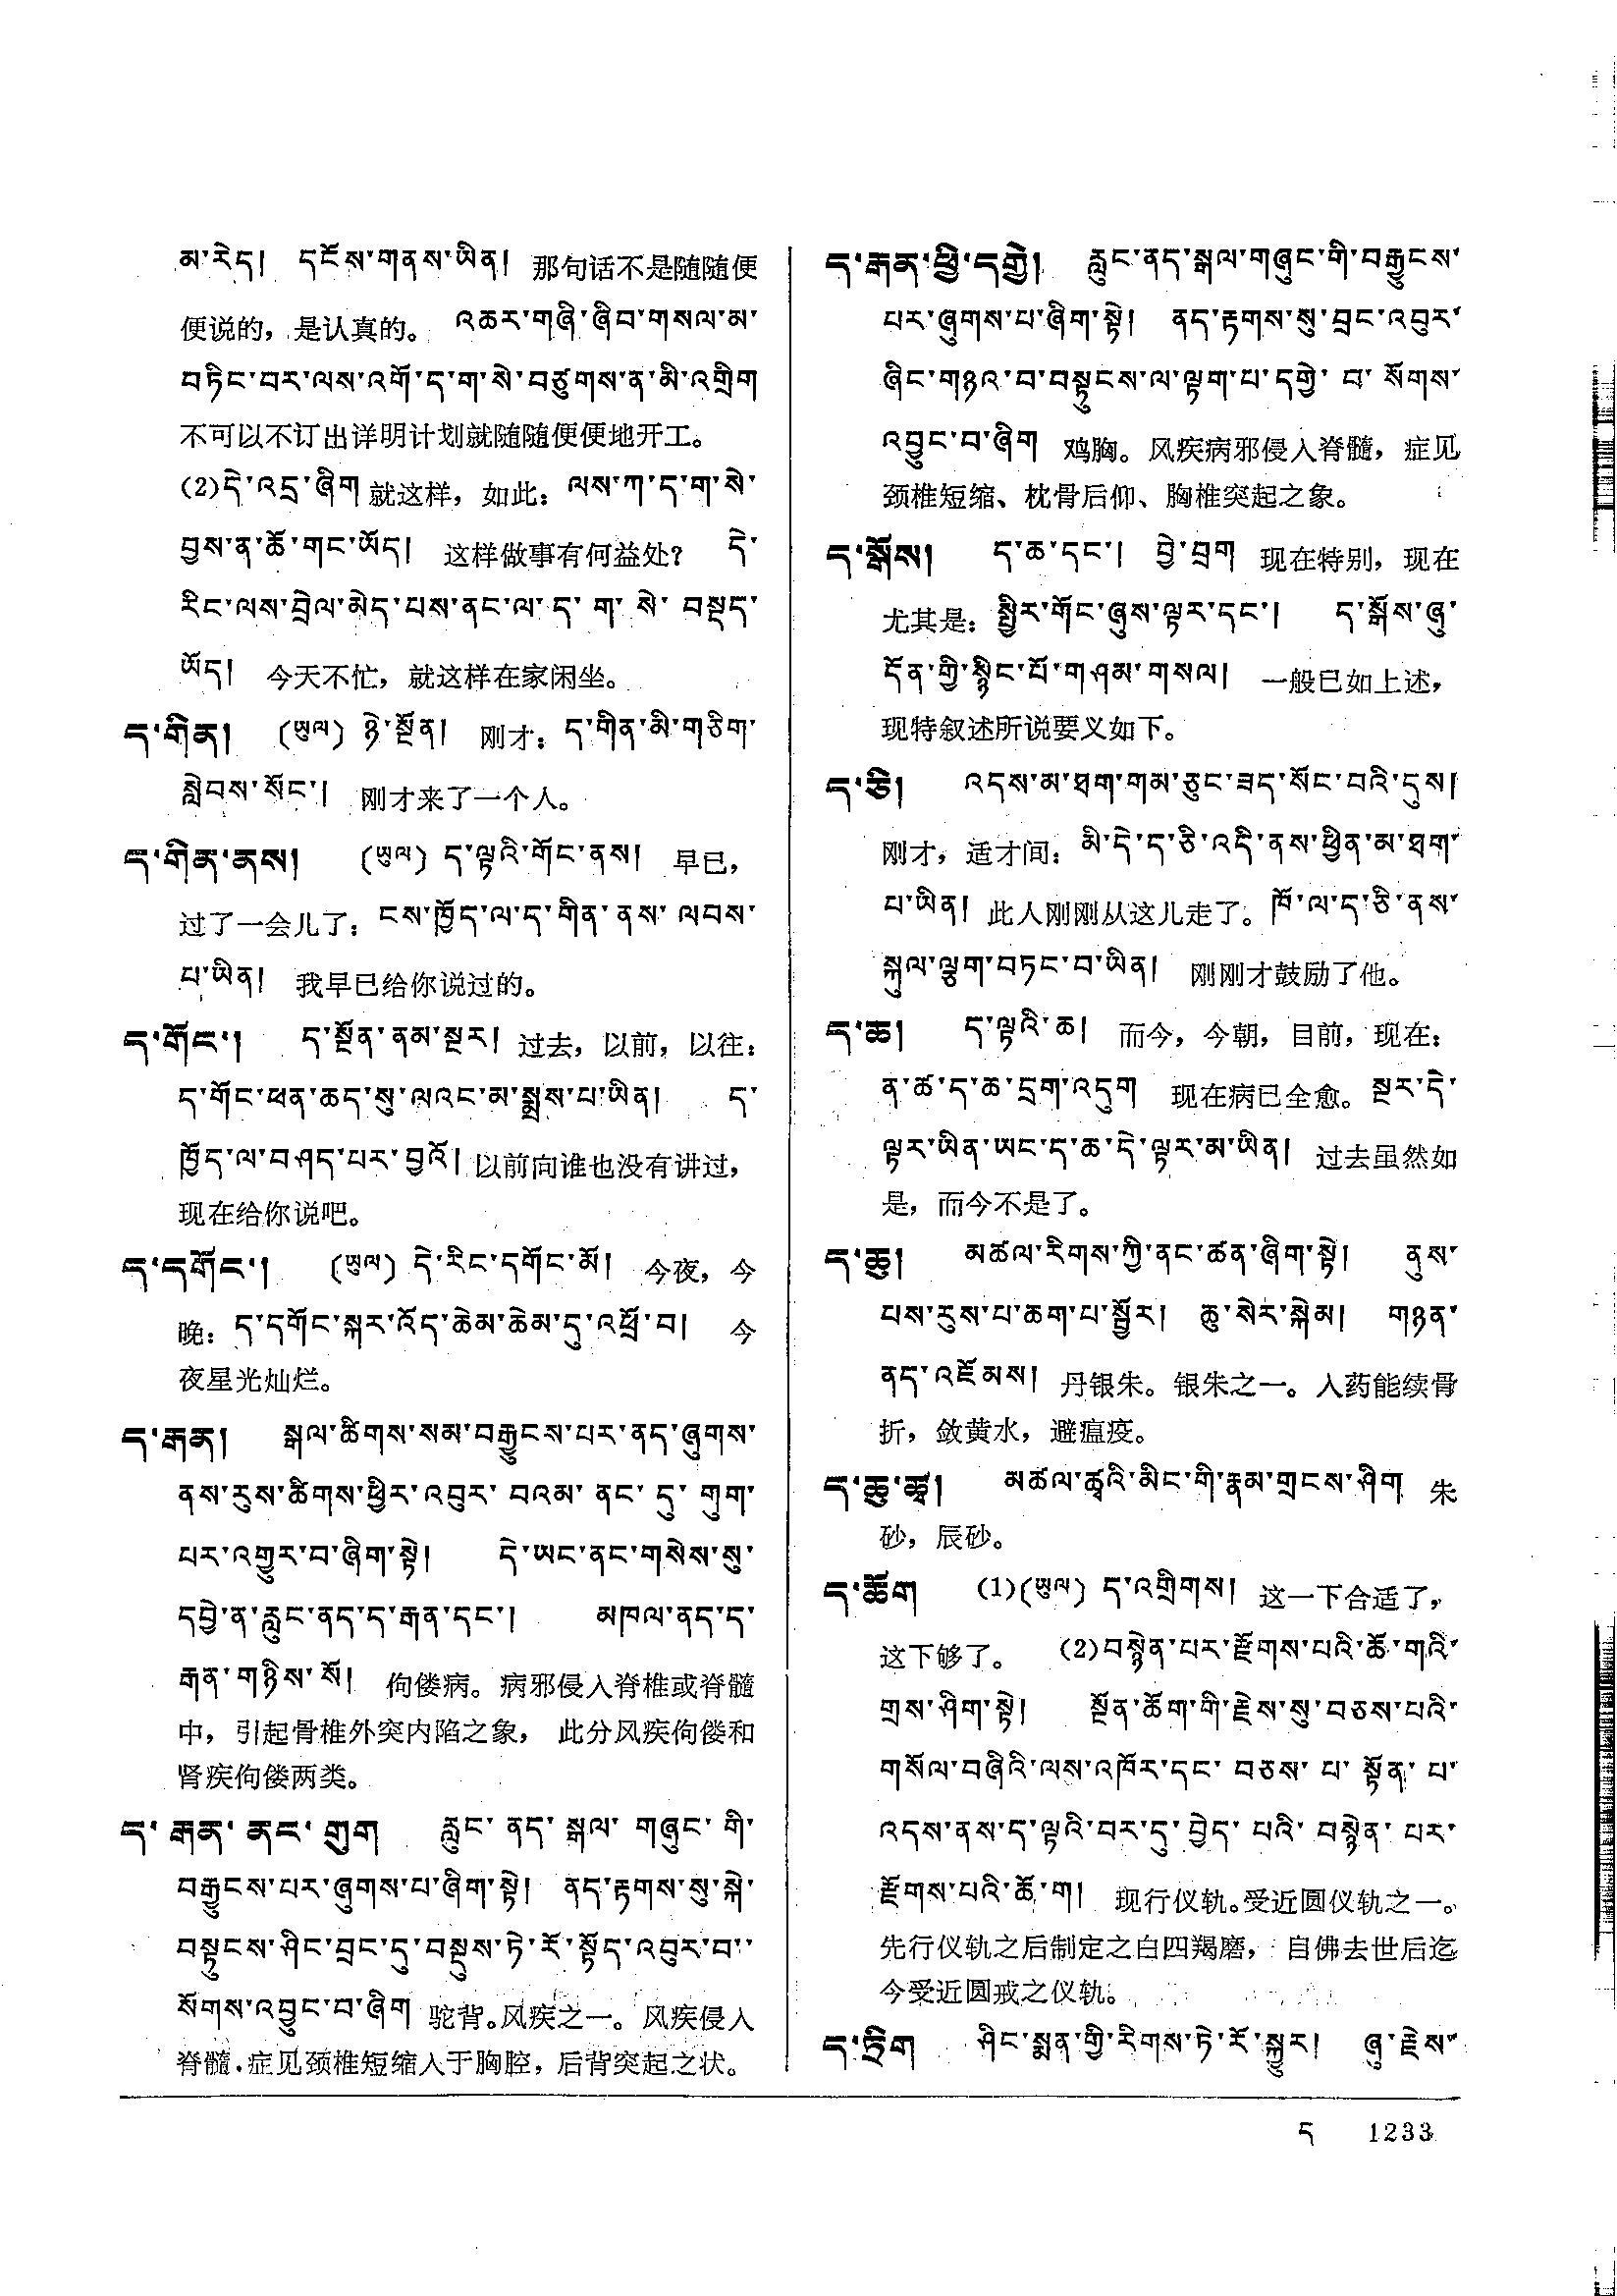 མ་རེད། དངོས་གནས་ཡིན། 那句话不是随随便
便说的，是认真的。 འཆར་གཞི་ཞིབ་གསལ་མ་
བཏིང་བར་ལས་འགོ་ད་ག་སེ་བཙུགས་ན་མི་འགྲིག
不可以不订出详明计划就随随便便地开工。
(2)དེ་འདྲ་ཞིག 就这样，如此：ལས་ཀ་ད་ག་སེ་
བྱས་ན་ཆོ་གང་ཡོད། 这样做事有何益处？ དེ་
རིང་ལས་བྲེལ་མེད་པས་ནང་ལ་ད་ག་སེ་བསྡད་
ཡོད། 今天不忙，就这样在家闲坐。
ད་གིན། (ཡུལ) ཉེ་སྔོན། 刚才：ད་གིན་མི་གཅིག་
སླེབས་སོང་། 刚才来了一个人。
ད་གིན་ནས། (ཡུལ) ད་ལྟའི་གོང་ནས། 早已，
过了一会儿了：ངས་ཁྱོད་ལ་ད་གིན་ནས་ལབས་
པ་ཡིན། 我早已给你说过的。
ད་གོང་། ད་སྔོན་ནམ་སྔར། 过去，以前，以往：
ད་གོང་ཕན་ཆད་སུ་ལའང་མ་སྨྲས་པ་ཡིན། ད་
ཁྱོད་ལ་བཤད་པར་བྱའོ། 以前向谁也没有讲过，
现在给你说吧。
ད་དགོང་། (ཡུལ) དེ་རིང་དགོང་མོ། 今夜，今
晚：ད་དགོང་སྐར་འོད་ཆེམ་ཆེམ་དུ་འཕྲོ་བ། 今
夜星光灿烂。
ད་རྒན། སྒལ་ཚིགས་སམ་བརྒྱུངས་པར་ནད་ཞུགས་
ནས་རུས་ཚིགས་ཕྱིར་འབུར་བའམ་ནང་དུ་གུག་
པར་འགྱུར་བ་ཞིག་སྟེ། དེ་ཡང་ནང་གསེས་སུ་
དབྱེ་ན་རླུང་ནད་ད་རྒན་དང་། མཁལ་ནད་ད་
རྒན་གཉིས་སོ། 佝偻病。病邪侵入脊椎或脊髓
中，引起骨椎外突内陷之象，此分风疾佝偻和
肾疾佝偻两类。
ད་རྒན་ནང་གྲུག རླུང་ནད་སྒལ་གཞུང་གི་
བརྒྱུངས་པར་ཞུགས་པ་ཞིག་སྟེ། ནད་རྟགས་སུ་སྐེ་
བསྟུངས་ཤིང་བྲང་དུ་བསྡུས་ཏེ་རོ་སྟོད་འབུར་བ་
སོགས་འབྱུང་བ་ཞིག 驼背。风疾之一。风疾侵入
脊髓.症见颈椎短缩入于胸腔，后背突起之状。
ད་རྒན་ཕྱི་དགྱེ། རླུང་ནད་སྒལ་གཞུང་གི་བརྒྱུངས་
པར་ཞུགས་པ་ཞིག་སྟེ། ནད་རྟགས་སུ་བྲང་འབུར་
ཞིང་གཉའ་བ་བསྟུངས་ལ་ལྟག་པ་དགྱེ་བ་སོགས་
འབྱུང་བ་ཞིག 鸡胸。风疾病邪侵入脊髓，症见
颈椎短缩、枕骨后仰、胸椎突起之象。
ད་སྒོས། ད་ཆ་དང་། བྱེ་བྲག 现在特别，现在
尤其是：སྤྱིར་གོང་ཞུས་ལྟར་དང་། ད་སྒོས་ཞུ་
དོན་གྱི་སྙིང་པོ་གཤམ་གསལ། 一般已如上述，
现特叙述所说要义如下。
ད་ཅི། འདས་མ་ཐག་གམ་ཅུང་ཟད་སོང་བའི་དུས།
刚才，适才间：མི་དེ་ད་ཅི་འདི་ནས་ཕྱིན་མ་ཐག་
པ་ཡིན། 此人刚刚从这儿走了。ཁོ་ལ་ད་ཅི་ནས་
སྐུལ་ལྕག་བཏང་བ་ཡིན། 刚刚才鼓励了他。
ད་ཆ། ད་ལྟའི་ཆ། 而今，今朝，目前，现在：
ན་ཚ་ད་ཆ་དྲག་འདུག 现在病已全愈。སྔར་དེ་
ལྟར་ཡིན་ཡང་ད་ཆ་དེ་ལྟར་མ་ཡིན། 过去虽然如
是，而今不是了。
ད་ཆུ། མཚལ་རིགས་ཀྱི་ནང་ཚན་ཞིག་སྟེ། ནུས་
པས་རུས་པ་ཆག་པ་སྦྱོར། ཆུ་སེར་སྐེམ། གཉན་
ནད་འཇོམས། 丹银朱。银朱之一。入药能续骨
折，敛黄水，避瘟疫。
ད་ཆུ་ཚྭ། མཚལ་ཚྭའི་མིང་གི་རྣམ་གྲངས་ཤིག 朱
砂，辰砂。
ད་ཆོག (1)(ཡུལ) ད་འགྲིགས། 这一下合适了，
这下够了。 (2)བསྙེན་པར་རྫོགས་པའི་ཆོ་གའི་
གྲས་ཤིག་སྟེ། སྔོན་ཆོག་གི་རྗེས་སུ་བཅས་པའི་
གསོལ་བཞིའི་ལས་འཁོར་དང་བཅས་པ་སྟོན་པ་
འདས་ནས་ད་ལྟའི་བར་དུ་བྱེད་པའི་བསྙེན་པར་
རྫོགས་པའི་ཆོ་ག། 现行仪轨。受近圆仪轨之一。
先行仪轨之后制定之白四羯磨，自佛去世后迄
今受近圆戒之仪轨。
ད་ཏྲིག ཤིང་སྨན་གྱི་རིགས་ཏེ་རོ་སྐྱུར། ཞུ་རྗེས་
ད 1233